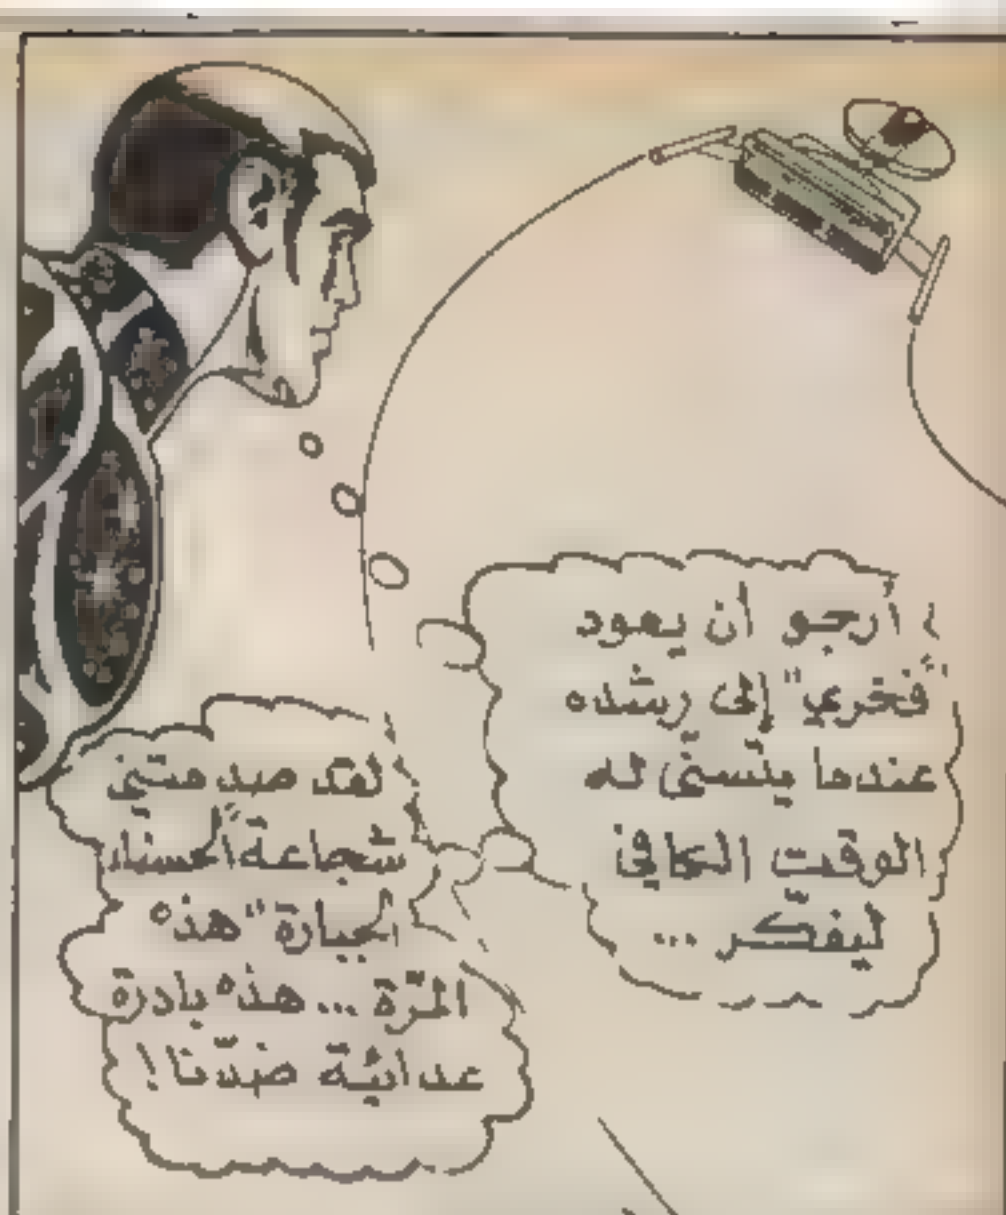 أرجو أن يعود
"فخري" إلى رشده
عندما يتسنّى له
الوقت الكافي
ليفكّر ...
لقد صدمتني
شجاعة "الحسناء
الجبارة" هذه
المرّة ... هذه بادرة
عدائيّة ضدّنا!